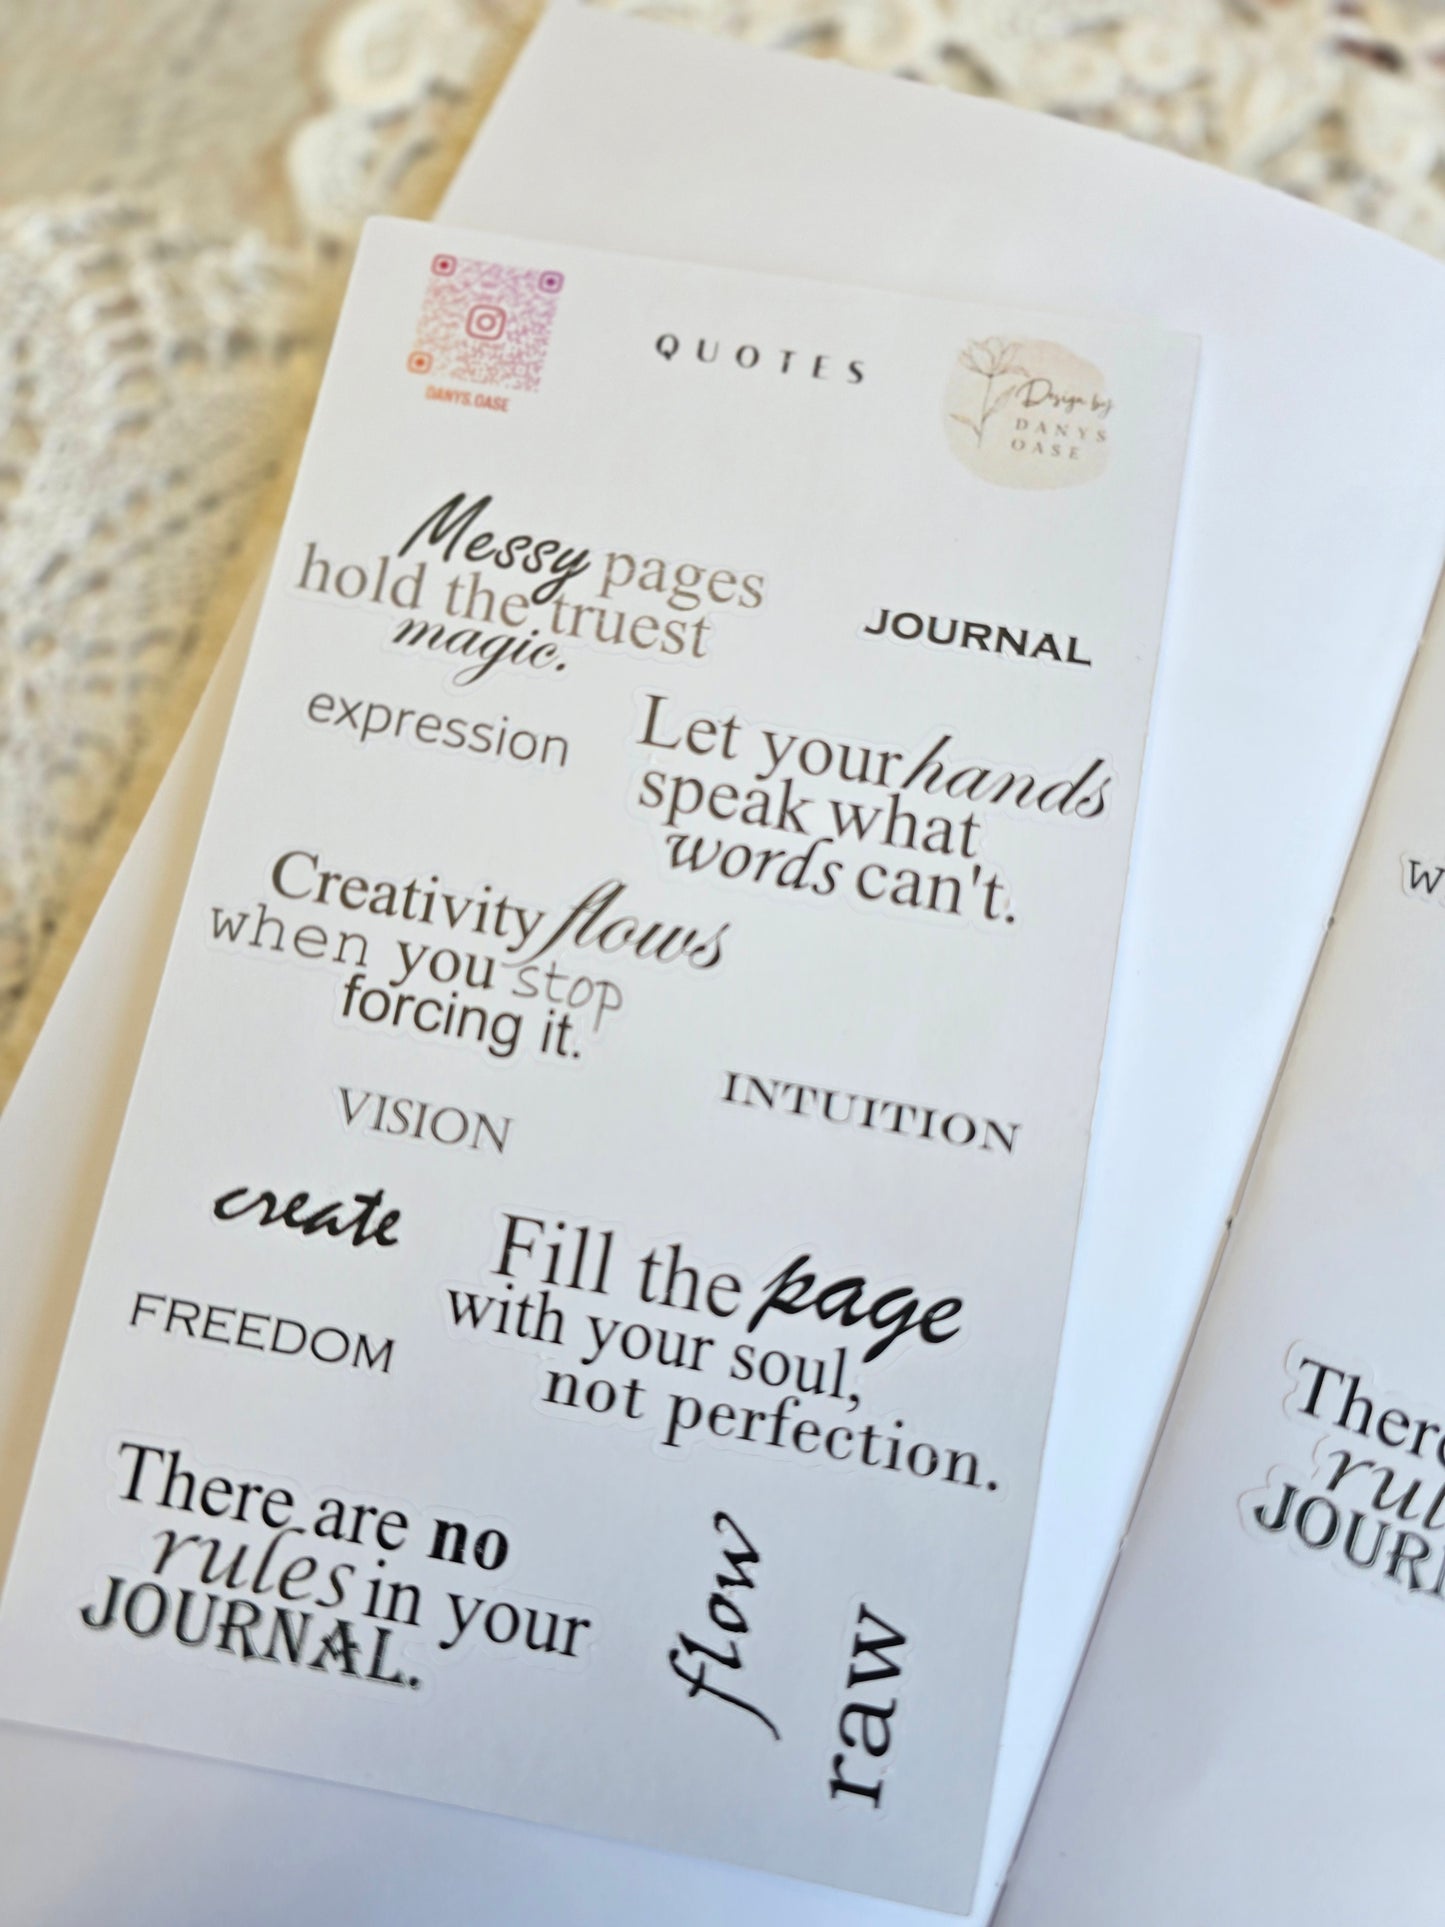 DANYS.OASE
QUOTES
Design by
DANYS
OASE
Messy pages
hold the truest
magic.
JOURNAL
expression
Let your hands
speak what
words can't.
Creativity flows
when you stop
forcing it.
VISION
INTUITION
create
Fill the page
with your soul,
not perfection.
FREEDOM
There are no
rules in your
JOURNAL.
flow
raw
There